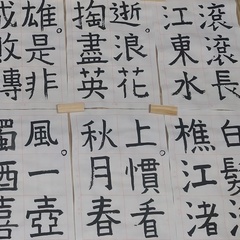 滾滾長
江東水
逝。浪花
掏盡英
雄。是非
成敗
白髮
樵江渚
上。慣看
秋月春
風。一壺
濁酒喜